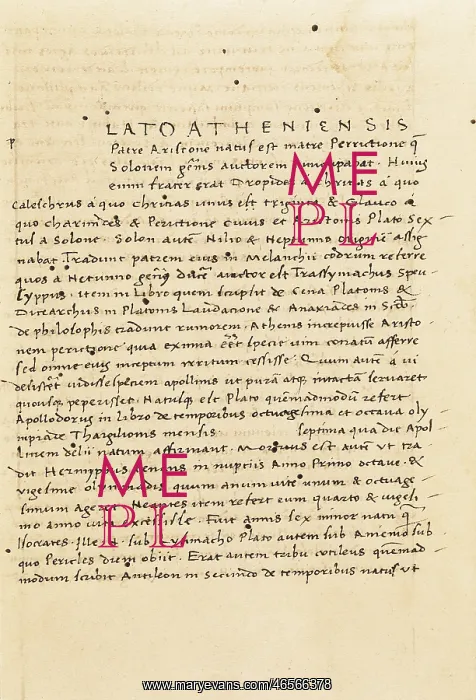 p
LATO ATHENIENSIS
Patre Aristone natus est matre Perictione q̃
Solonem gñis auctorem Huius
enim frater erat Dropides a quo
Caleschrus á quo chritias unus est triginta & Glauco a
quo charmides & Perictione cuius et Aristonis Plato Sex
tus a Solone. Solon autē Nilio & Neptunno originē assig
nabat. Tradunt patrem eius in Melanchū codrum referre
quos a Netunno genus auctor est Trasymachus Speu
syppus. item in libro quem scripsit de cena Platonis &
Dicearchus in Platonis Laudacione & Anaxiades in
de philosophis tradunt rumorem. Athenis increpuisse Aristo
nem perictione quia eximia eēt specie uim conatū afferre
sed omne eius inceptum irritum cessisse. Quum autē á ui
uidisse speciem apollinis ut purā atq̃ intactā seruaret
quousq̃ peperisset. Natusq̃ est Plato quemadmodū refert
Apollodorus in libro de temporibus octuagesima et octaua oly
mpiade Thargilionis mensis septima qua die Apol-
linem delii natum affirmant. Mortuus est autē ut tra
dit Hermippus in nuptiis Anno Primo octaue &
uigesime olympiadis quum anum unū unum & octuage
simum Neantes item refert eum quarto & uigesi
mo anno Fuit annis sex minor natu q̃
Isocrates. sub Lysimacho Plato autem sub Amenio sub
quo Pericles diem obiit. Erat autem tribu cotileus quemad
modum scribit Antileon in secundo de temporibus natus ut
ME
PL
ME
PL
www.maryevans.com/46566378